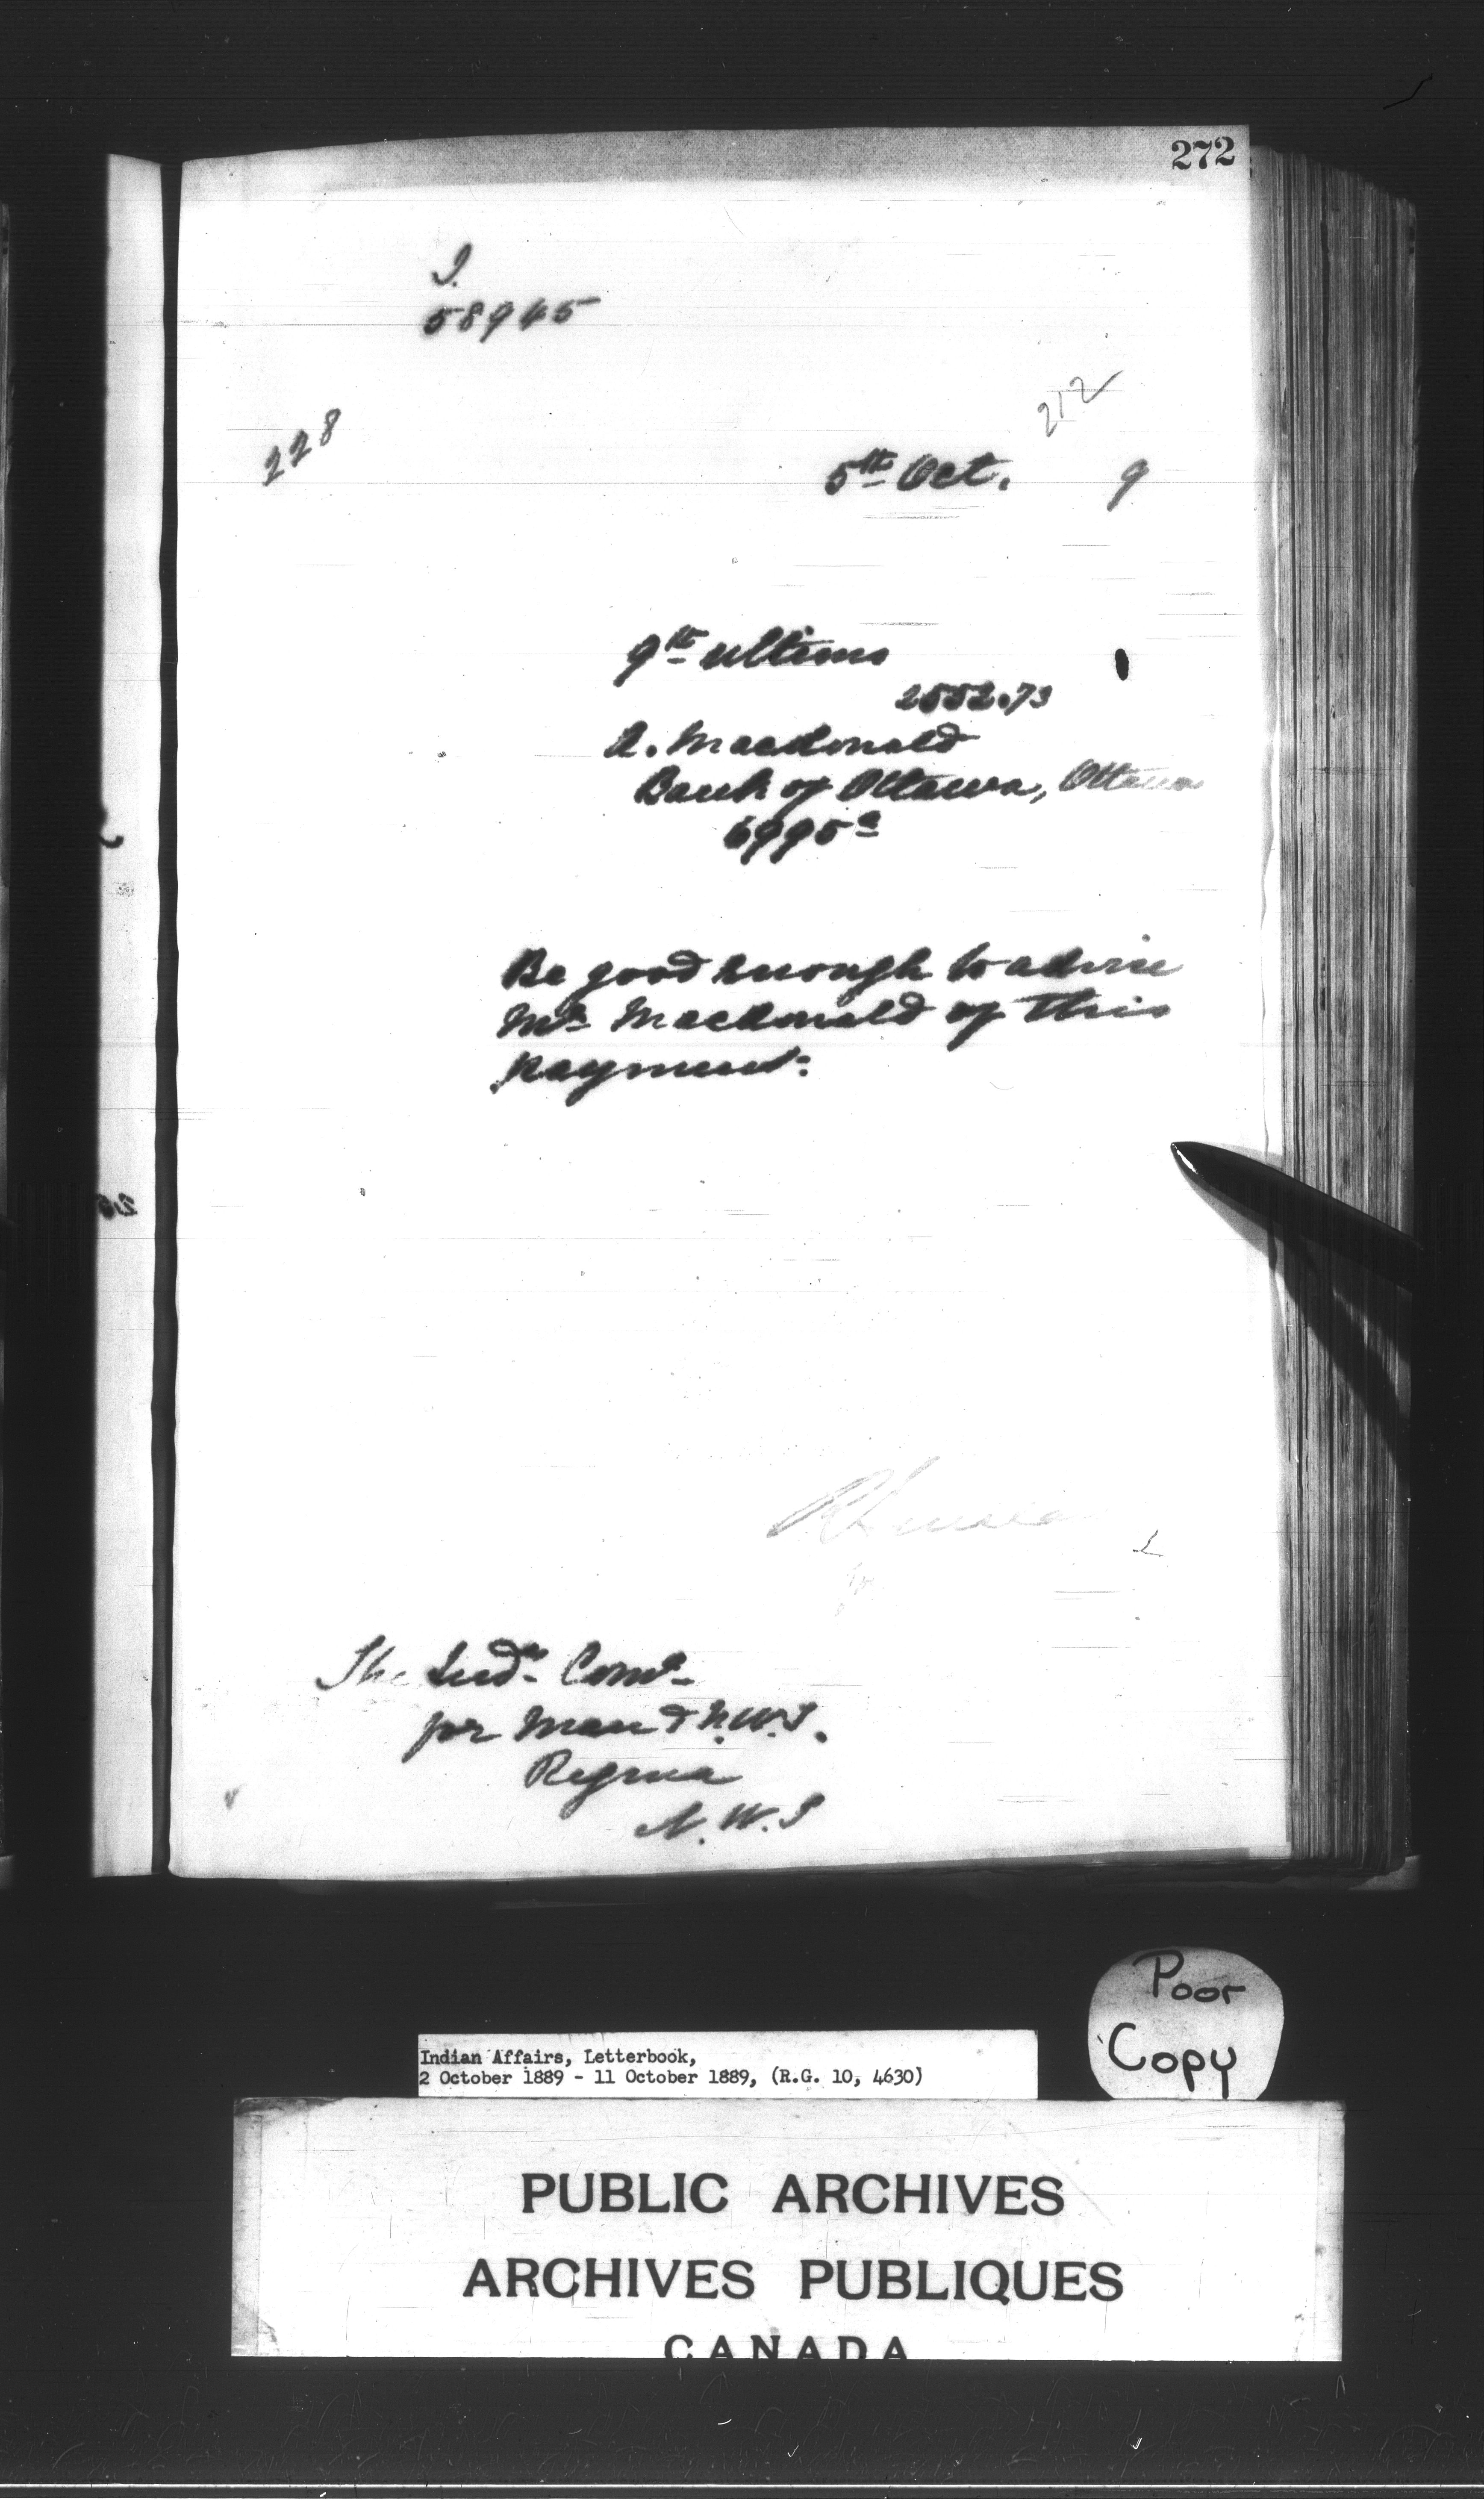 272
I.
58945
212
228
5th Oct. 9
9th ultimo
2552.73
A. Macdonald
Bank of Ottawa, Ottawa
6995a
Be good enough to advise
Mr Macdonald of this
payment.
The Indn Comr
for Man & N.W.T.
Regina
N.W.T
Poor
Copy
Indian Affairs, Letterbook,
2 October 1889 - 11 October 1889, (R.G. 10, 4630)
PUBLIC ARCHIVES
ARCHIVES PUBLIQUES
CANADA